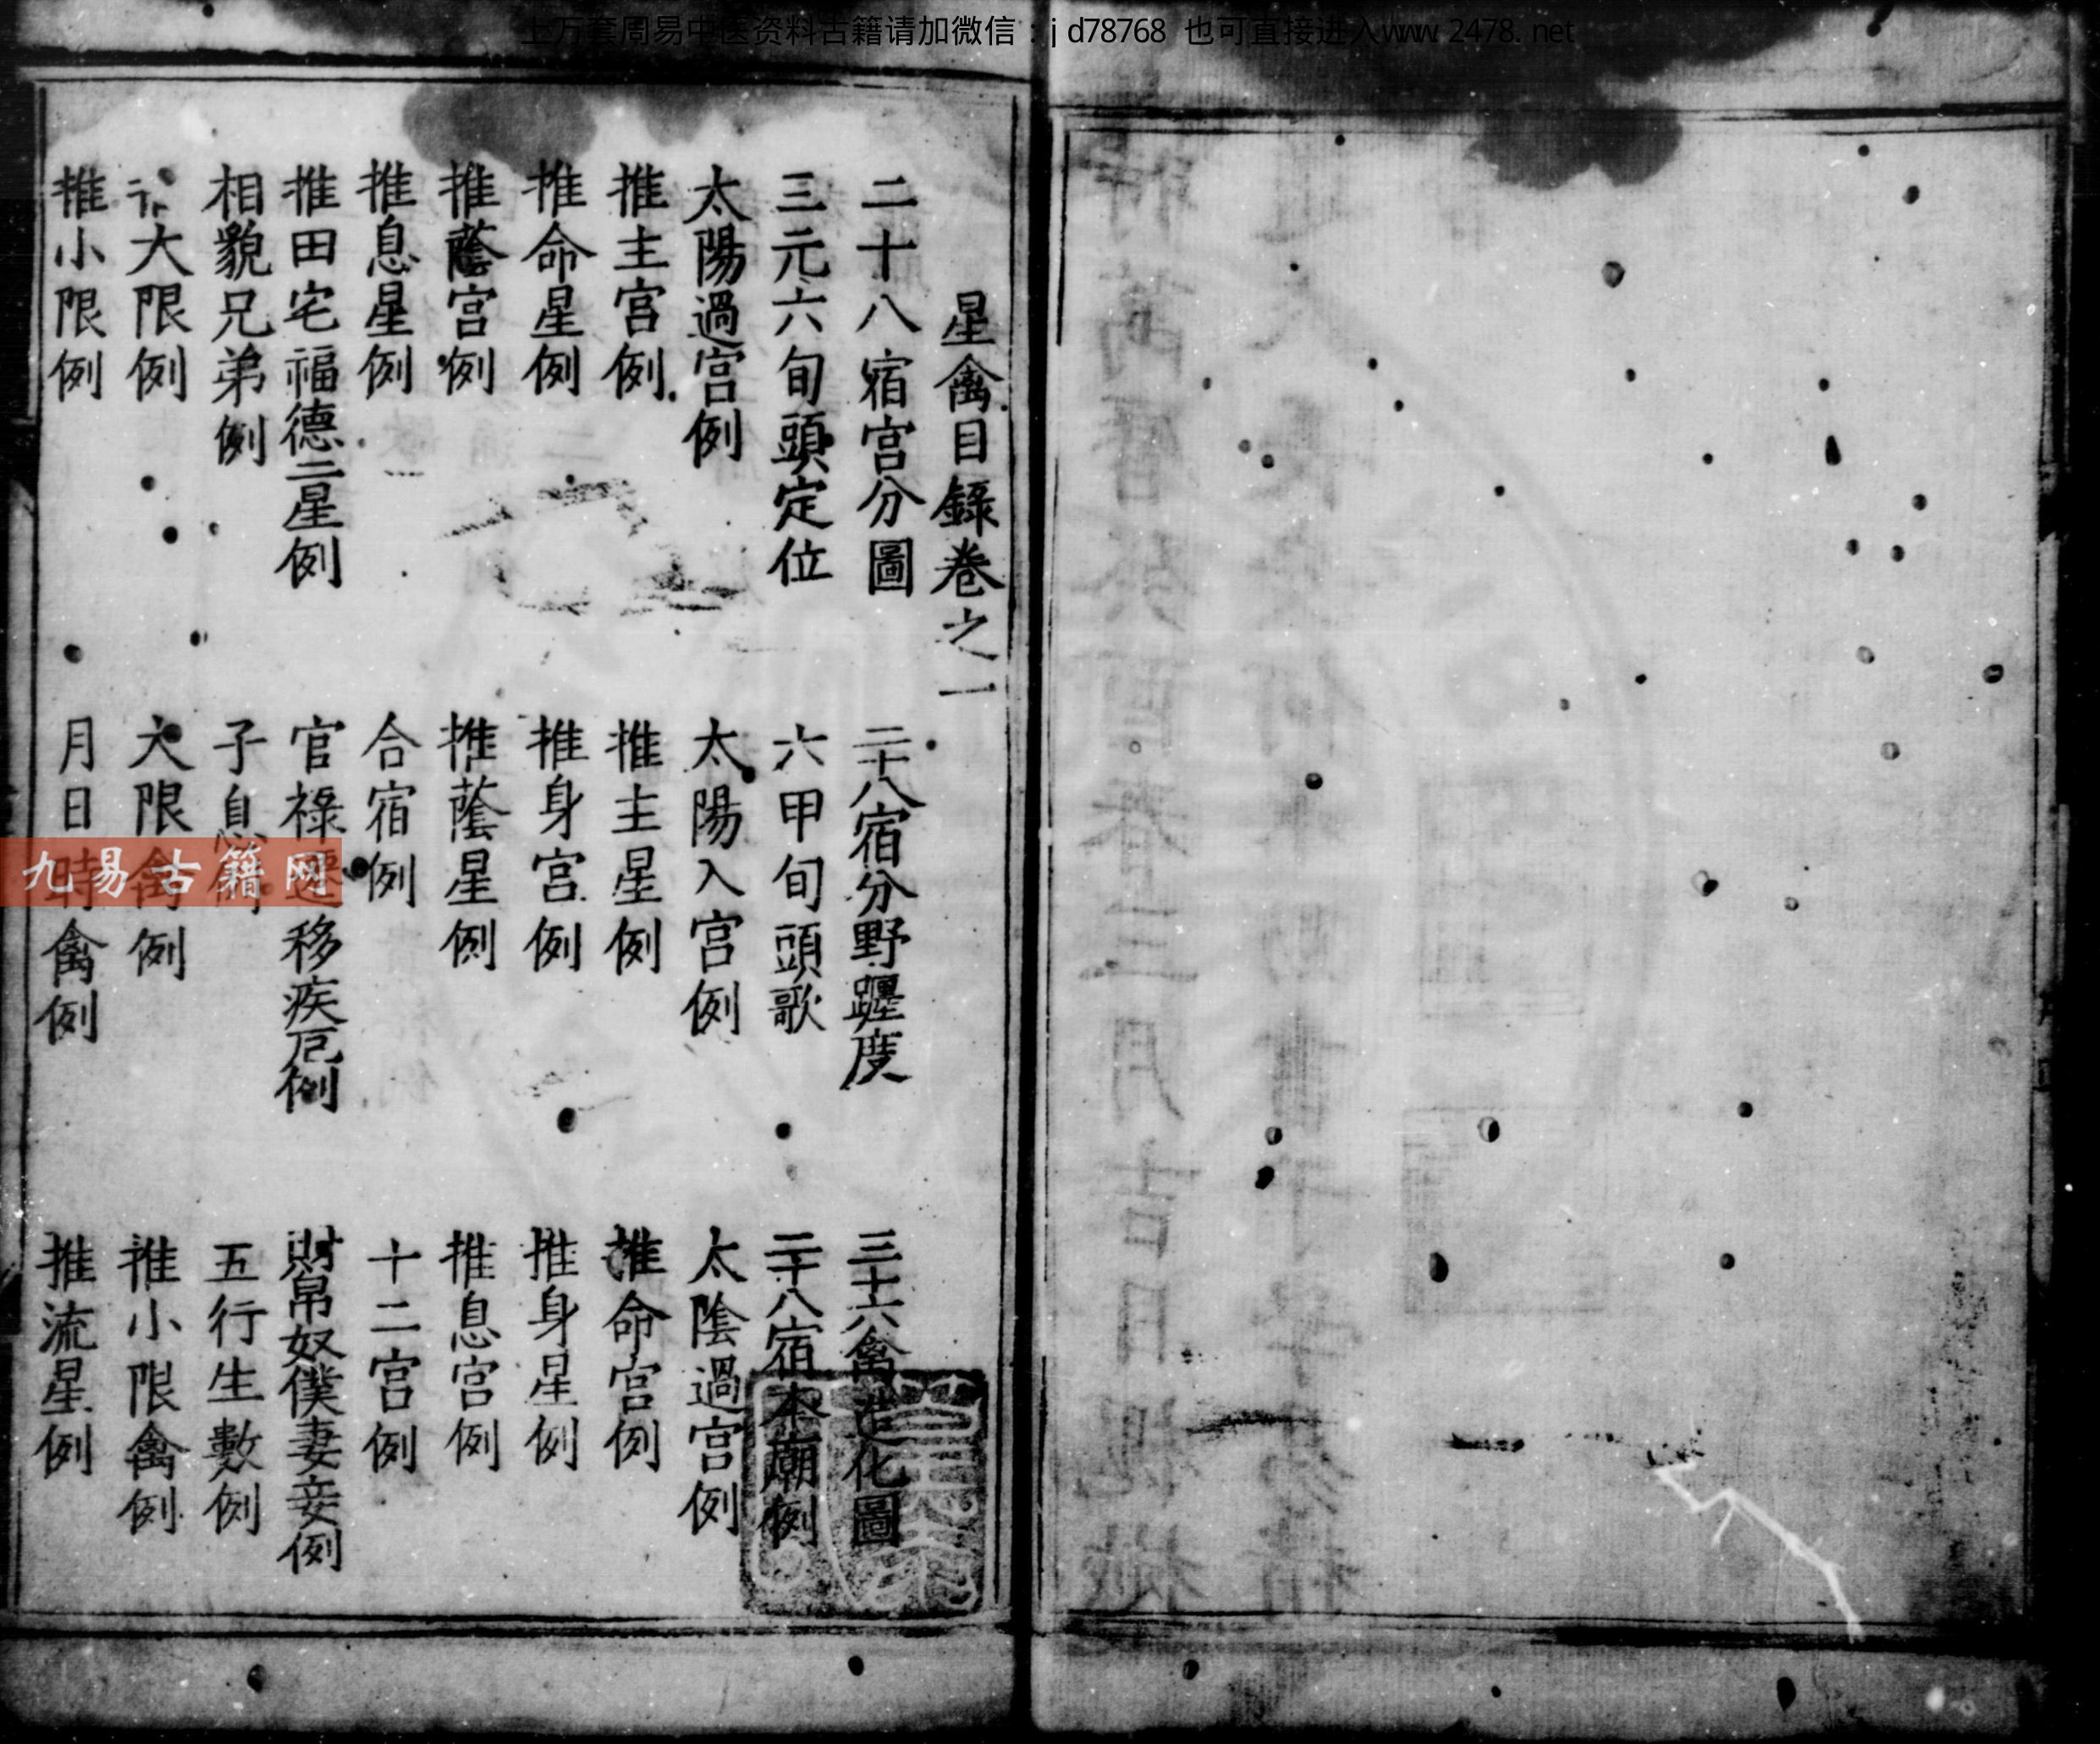 上万套周易中医资料古籍请加微信：jd78768 也可直接进入www.2478.net
星禽目錄卷之一
二十八宿宫分圖 二十八宿分野躔度 三十六禽造化圖
三元六旬頭定位 六甲旬頭歌 二十八宿本廟例
太陽過宫例 太陽入宫例 太陰過宫例
推主宫例 推主星例 推命宫例
推命星例 推身宫例 推身星例
推蔭宫例 推蔭星例 推息宫例
推息星例 合宿例 十二宫例
推田宅福德二星例 官祿遷移疾厄例 財帛奴僕妻妾例
相貌兄弟例 子息例 五行生數例
大限例 大限禽例 推小限禽例
推小限例 月日時禽例 推流星例
九易古籍网